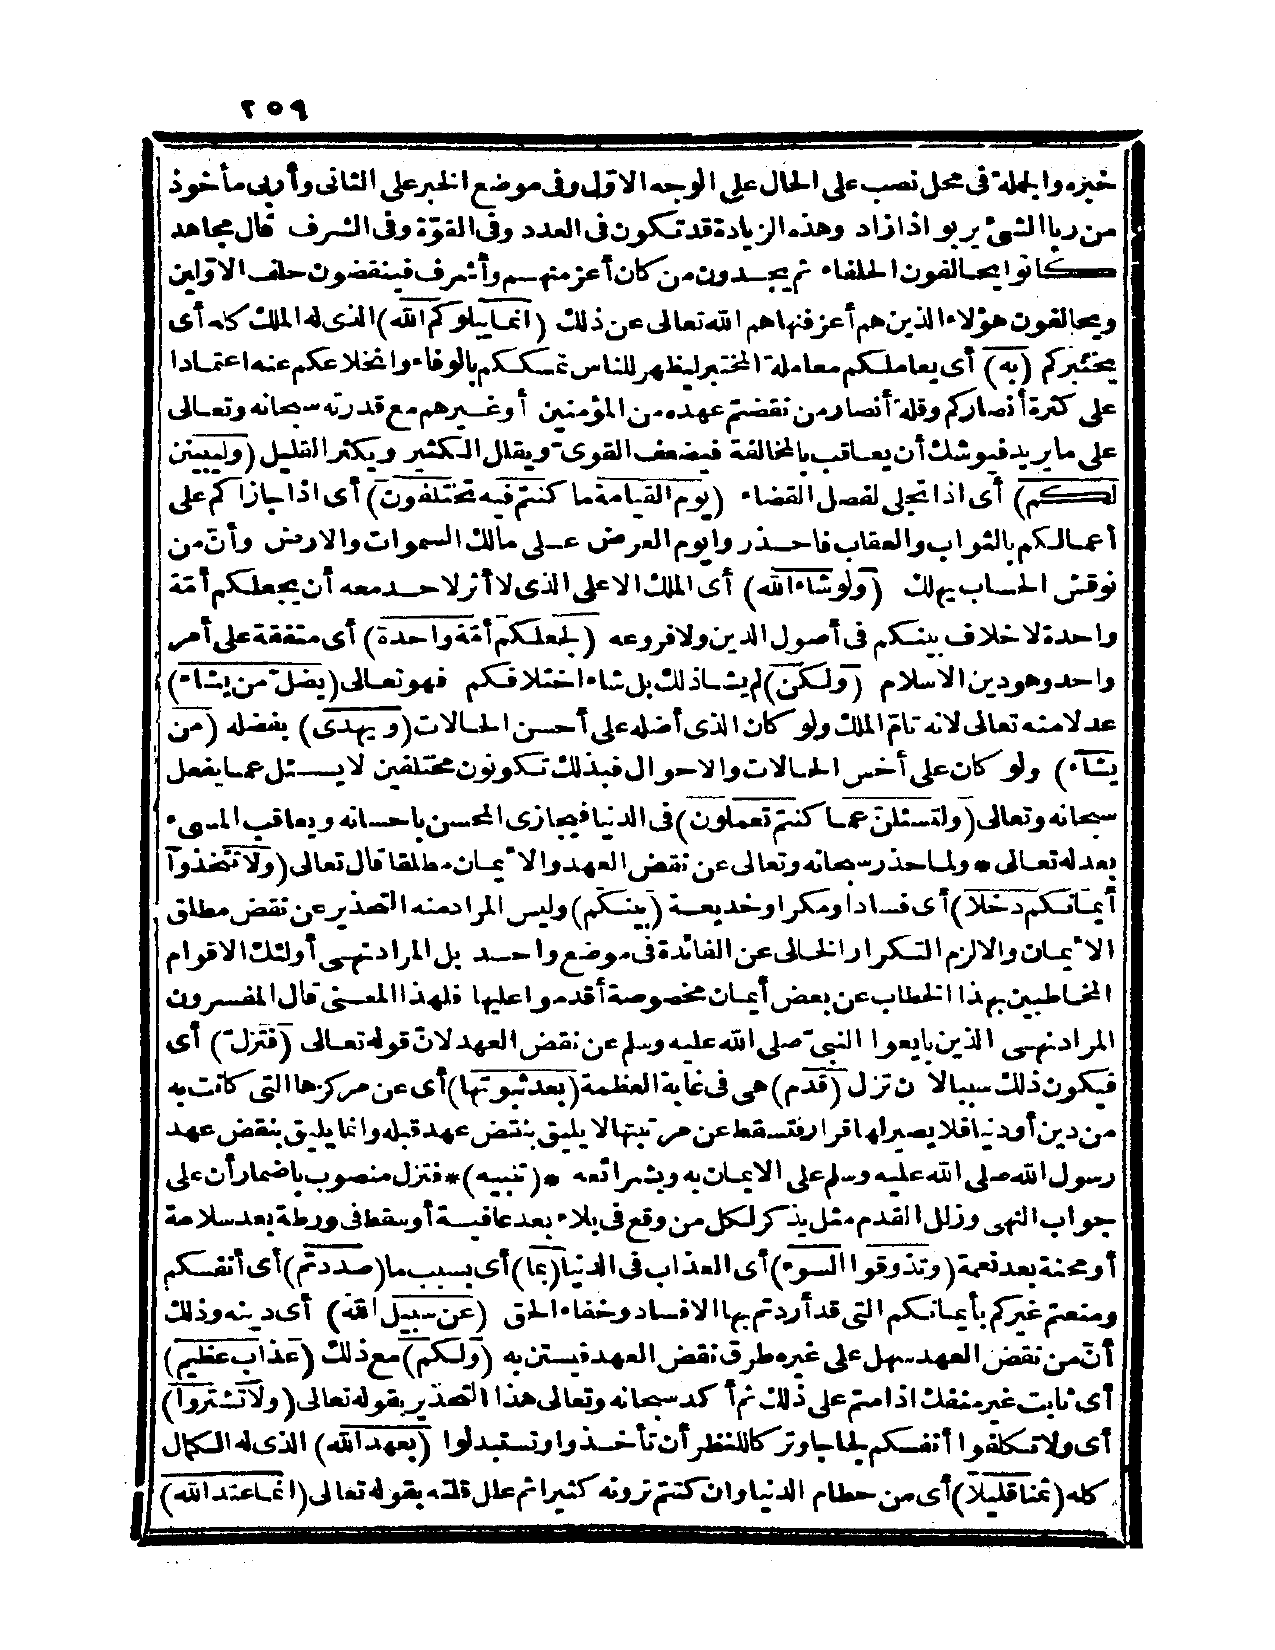 ٢٥٩
خبره والجملة فى محل نصب على الحال على الوجه الاوّل وفى موضع الخبر على الثانى وأربى مأخوذ
من ربا الشئ يربو اذا زاد وهذه الزيادة قد تكون فى العدد وفى القوّة وفى الشرف قال مجاهد
كانوا يحالفون الحلفاء ثم يجدون من كان أعز منهم وأشرف فينقضون حلف الاوّلين
ويحالفون هؤلاء الذين هم أعز فنهاهم الله تعالى عن ذلك (انما يبلوكم الله) الذى له الملك كله أى
يختبركم (به) أى يعاملكم معاملة المختبر ليظهر للناس تمسككم بالوفاء وانخلاعكم عنه اعتمادا
على كثرة أنصاركم وقلة أنصار من نقضتم عهده من المؤمنين أو غيرهم مع قدرته سبحانه وتعالى
على ما يريد فيوشك أن يعاقب بالمخالفة فيضعف القوىّ ويقلل الكثير ويكثر القليل (وليبينن
لكم) أى اذا تجلى لفصل القضاء (يوم القيامة ما كنتم فيه تختلفون) أى اذا جازاكم على
أعمالكم بالثواب والعقاب فاحذروا يوم العرض على مالك السموات والارض وأنّ من
نوقش الحساب يهلك (ولو شاء الله) أى الملك الاعلى الذى لا أثر لاحد معه أن يجعلكم أمّة
واحدة لا خلاف بينكم فى أصول الدين ولا فروعه (لجعلكم أمّة واحدة) أى متفقة على أمر
واحد وهو دين الاسلام (ولكن) لم يشأ ذلك بل شاء اختلافكم فهو تعالى (يضلّ من يشاء)
عدلا منه تعالى لانه تامّ الملك ولو كان الذى أضله على أحسن الحالات (ويهدى) بفضله (من
يشاء) ولو كان على أخس الحالات والاحوال فبذلك تكونون مختلفين لا يسئل عما يفعل
سبحانه وتعالى (ولتسئلنّ عما كنتم تعملون) فى الدنيا فيجازى المحسن باحسانه ويعاقب المسىء
بعدله تعالى * ولما حذر سبحانه وتعالى عن نقض العهد والايمان مطلقا قال تعالى (ولا تتخذوا
أيمانكم دخلا) أى فسادا ومكرا وخديعة (بينكم) وليس المراد منه التحذير عن نقض مطلق
الايمان والا لزم التكرار الخالى عن الفائدة فى موضع واحد بل المراد نهى أولئك الاقوام
المخاطبين بهذا الخطاب عن بعض أيمان مخصوصة أقدموا عليها فلهذا المعنى قال المفسرون
المراد نهى الذين بايعوا النبىّ صلى الله عليه وسلم عن نقض العهد لانّ قوله تعالى (فتزلّ) أى
فيكون ذلك سببا لا ن تزل (قدم) هى فى غاية العظمة (بعد ثبوتها) أى عن مركزها التى كانت به
من دين أو دنيا فلا يصير لها قرار فتسقط عن مرتبتها لا يليق بنقض عهد قبله وانما يليق بنقض عهد
رسول الله صلى الله عليه وسلم على الايمان به وبشرائعه * (تنبيه) * فتزل منصوب باضمار أن على
جواب النهى وزلل القدم مثل يذكر لكل من وقع فى بلاء بعد عافية أو سقط فى ورطة بعد سلامة
أو محنة بعد نعمة (وتذوقوا السوء) أى العذاب فى الدنيا (بما) أى بسبب ما (صددتم) أى أنفسكم
ومنعتم غيركم بأيمانكم التى قد أردتم بها الافساد وخفاء الحق (عن سبيل الله) أى دينه وذلك
أنّ من نقض العهد سهل على غيره طرق نقض العهد فيستن به (ولكم) مع ذلك (عذاب عظيم)
أى ثابت غير منفك اذا متم على ذلك ثم أكد سبحانه وتعالى هذا التحذير بقوله تعالى (ولا تشتروا)
أى ولا تكلفوا أنفسكم لجاجا وتركا للنظر أن تأخذوا وتستبدلوا (بعهد الله) الذى له الكمال
كله (ثمنا قليلا) أى من حطام الدنيا وان كنتم ترونه كثيرا ثم علل قلته بقوله تعالى (انما عند الله)